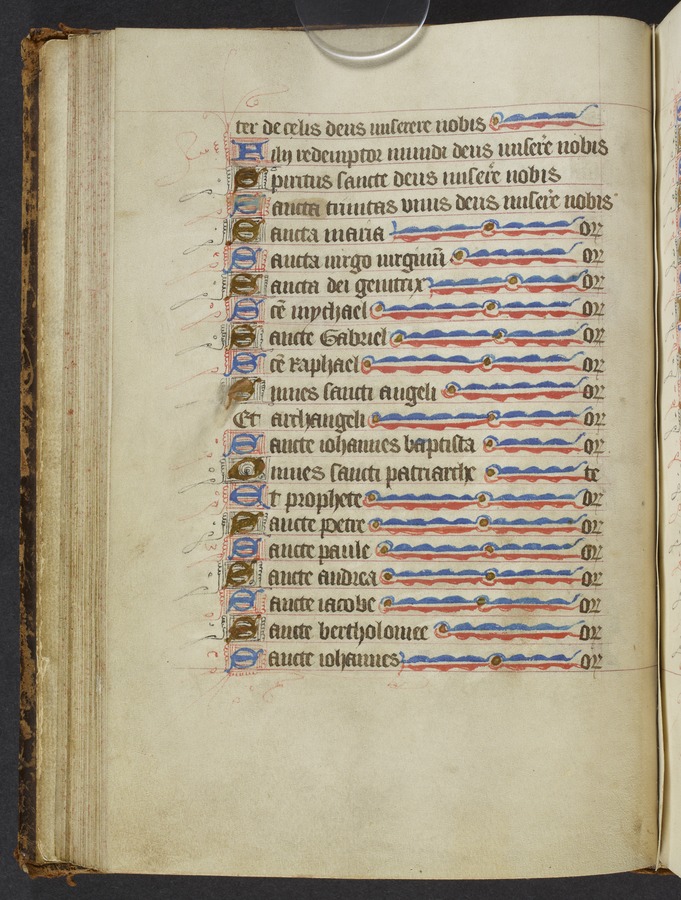 ter de celis deus miserere nobis
Fili redemptor mundi deus miser̄e nobis
Spiritus sancte deus miser̄e nobis
Sancta trinitas vnus deus miser̄e nobis
Sancta maria or
Sancta uirgo uirginū or
Sancta dei genitrix or
Sc̄e mychael or
Sancte Gabriel or
Sc̄e Raphael or
Omnes sancti angeli or
Et archangeli or
Sancte iohannes baptista or
Omnes sancti patriarche te
Et prophete or
Sancte petre or
Sancte paule or
Sancte andrea or
Sancte iacobe or
Sancte bertholomee or
Sancte iohannes or